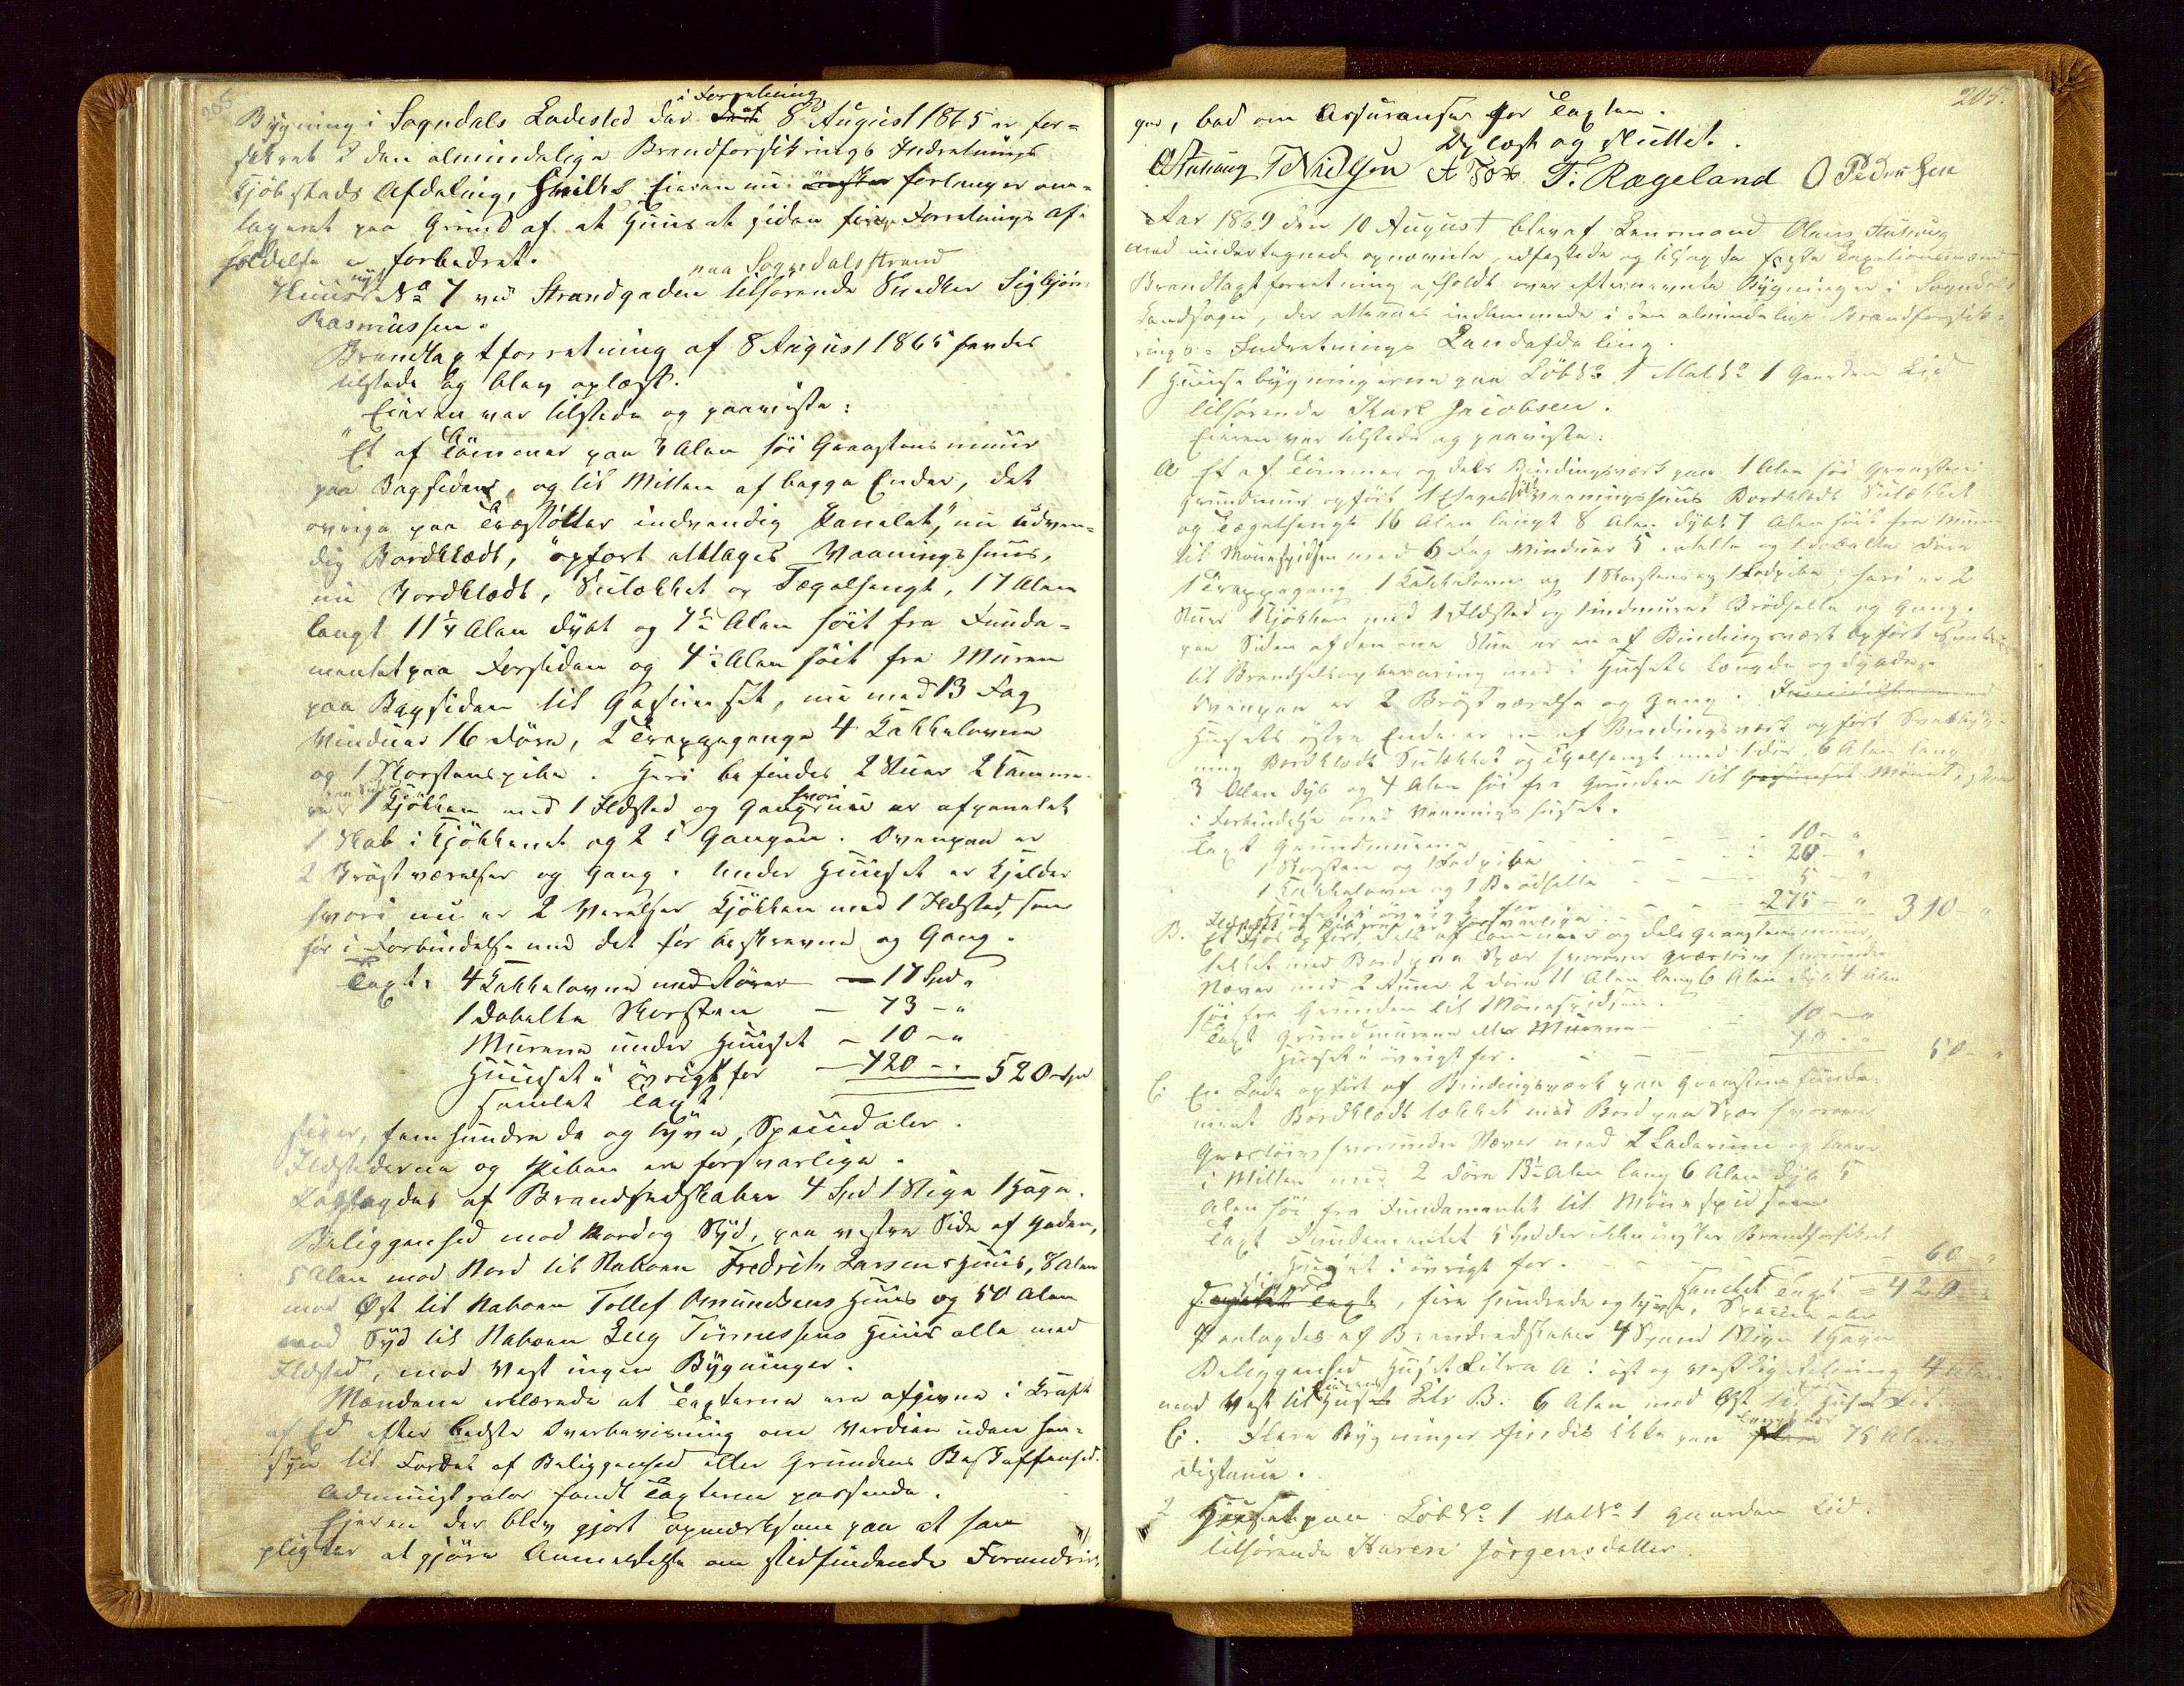 265
i Forretning
Bygning i Sogndals Ladested der af 8 August 1865 er for=
sikret i den almindelige Brandforsikrings Indretnings
Kjøbstads Afdeling, hvilket Eieren nu ønsker forlanger om=
taxeret paa Grund af at Huuset siden Forretnings Af=
holdelse er forbedret.
paa Sogndalsstrand
Huuset No 7 ved Strandgaden tilhørende Snedker Sigbjørn
Rasmussen.
Brandtaxtforretning af 8 August 1865 havdes
tilstede og blev oplæst.
Eieren var tilstede og paaviste:
Et af Tømmer paa 3 Alen høi Graastensmuur
paa Bagsiden, og til Mitten af begge Ender, det
øvrige paa Træstøtter indvendig Panelet, nu udven=
dig Bordklædt, opført Vaaningshuus,
nu Bordklædt, Sutækket og Tægelhængt, 17 Alen
langt 11¼ Alen dybt og 7½ Alen høit fra Funda=
mentet paa Forsiden og 4½ Alen høit fra Muren
paa Bagsiden til Gesimset, nu med 13 Fag
Vinduer 16 Døre, 2 Trappegange 4 Kakkelovne
og 1 Skorstenspibe. Heri befindes 2 Stuer 2 Kammere
1 Kjøkken med 1 Ildsted og Gang hvori er afpanelet
1 Skab i Kjøkkenet og 2 i Gangen. Ovenpaa er
2 Brystværelser og Gang. Under Huuset er Kjelder
hvori nu er 2 Værelser Kjøkken med 1 Ildsted, som
før i Forbindelse med det før beskrevne og Gang.
Taxt: 4 Kakkelovne med Rører — 17 Spd „
1 dobelte Skorsten — 73 — „
Murene under Huuset — 10 — „
Huuset i øvrigt for — 420 — „ 520 Spd
samlet Taxt
siger, femhundrede og tyve, Speciedaler.
Ildstederne og Piben ere forsvarlige.
af Brandredskaber 4 Spd 1 Stige 1 Hage.
Beliggenhed mod Nord og Syd, paa vestre Side af Gaden,
5 Alen mod Nord til Naboen Fredrik Larsens Huus, 8 Alen
mod Øst til Naboen Tollef Omundsens Huus og 50 Alen
mod Syd til Naboen Huus alle med
Ildsted, mod Vest ingen Bygninger.
Mændene erklærede at Taxterne ere afgivne i Kraft
af Ed efter bedste Overbeviisning om Værdien uden Hen=
syn til Fordel af Beliggenhed eller Grundens Beskaffenhed.
Administrator fandt Taxterne passende.
Eieren der blev gjort opmærksom paa at han
pligter at gjøre Anmeldelse om stedfindende Forandrin=
205.
ger, bad om Assurance for Taxten.
Oplæst og sluttet.
T Nielsen T. Rægeland O Pedersen
Aar 1869 den 10 August blev af Lensmand Olaus
med undertegnede opnævnte, edfæstede og tilsagte faste Taxationsmænd
Brandtaxtforretning afholdt over efternævnte Bygninger i Sogndals
Landsogn, der attraaes indlemmede i den almindelige Brandforsik=
rings=Indretnings Landafdeling.
1 Huusebygningerne paa LøbNo 1 MatNo 1 Gaarden Lid
tilhørende Karl Jacobsen.
Eieren var tilstede og paaviste:
A Et af Tømmer og dels Bindingsværk paa 1 Alen høi Graastens
Grundmuur opført 1 Etages Vaaningshuus Bordklædt Sutækket
og Tægelhængt 16 Alen langt 8 Alen dybt 7 Alen høit fra Muren
til Mønespidsen med 6 Fag Vinduer 5 enkelte og 1 dobelte Døre
1 Trappegang 1 Kakkelovn og 1 Skorstens og 1 Fodpibe; heri er 2
Stuer Kjøkken med 1 Ildsted og 1 indmuret Brødhelle og Gang.
paa Siden af den ene Stue er en af Bindingsværk opført
til Brændselsopbevaring med i Husets Længde og Dybde.
Ovenpaa er 2 Brystværelse og Gang.
Husets østre Ende er en af Bindingsværk opført Svalbyg=
ning Bordklædt Sutækket og Tægelhængt med 1 dør, 6 Alen lang
3 Alen dyb og 4 Alen høi fra Grunden til Mønet,
i Forbindelse med Vaaningshuset.
Taxt Grundmurene 10 — „
1 Skorsten og 1 Fodpibe 20 — „
1 Kakkelovn og 1 Brødhelle 5 — „
Huuset i øvrigt for 275 — „ 310 — „
Ildstedet og Piberne er forsvarlige
B. Et Fjøs opført, dels af Tømmer og dels Graastensmuur,
tækket med Bord paa Spær hvorover Græstørv hvorunder
Næver med 2 Rum 2 Døre 11 Alen lang 6 Alen dyb 4 Alen
høi fra Grunden til Mønespidsen.
Taxt Grundmurene eller Murene 10 — „
Huuset i øvrigt for 40 — „ 50 — „
C. En Lade opført af Bindingsværk paa Graastens Funda=
ment Bordklædt tækket med Bord paa Spær hvorover
Græstørv hvorunder Næver med 2 Laderum og Laave
i Mitten med 2 Døre 13½ Alen lang 6 Alen dyb 5
Alen høi fra Fundamentet til Mønespidsen
Taxt Fundamentet 5 Spd der ikke ønskes Brandforsikret
Huuset i øvrigt for. 60 — „
samlet Taxt = 420 — „
siger, fire hundrede og tyve, Speciedaler
af Brandredskaber 4 Spand 1 Stige 1 Hage
Beliggenhed Huset Litra A i øst og vestlig Retning 4 Alen
mod Vest til Huset Litr B: 6 Alen mod Øst til Huset Lit.
C. Flere Bygninger findes ikke paa 75 Alens
Distance.
2 Huuset paa LøbNo 1 MatNo 1 Gaarden Lid.
tilhørende Karen Jørgensdatter.